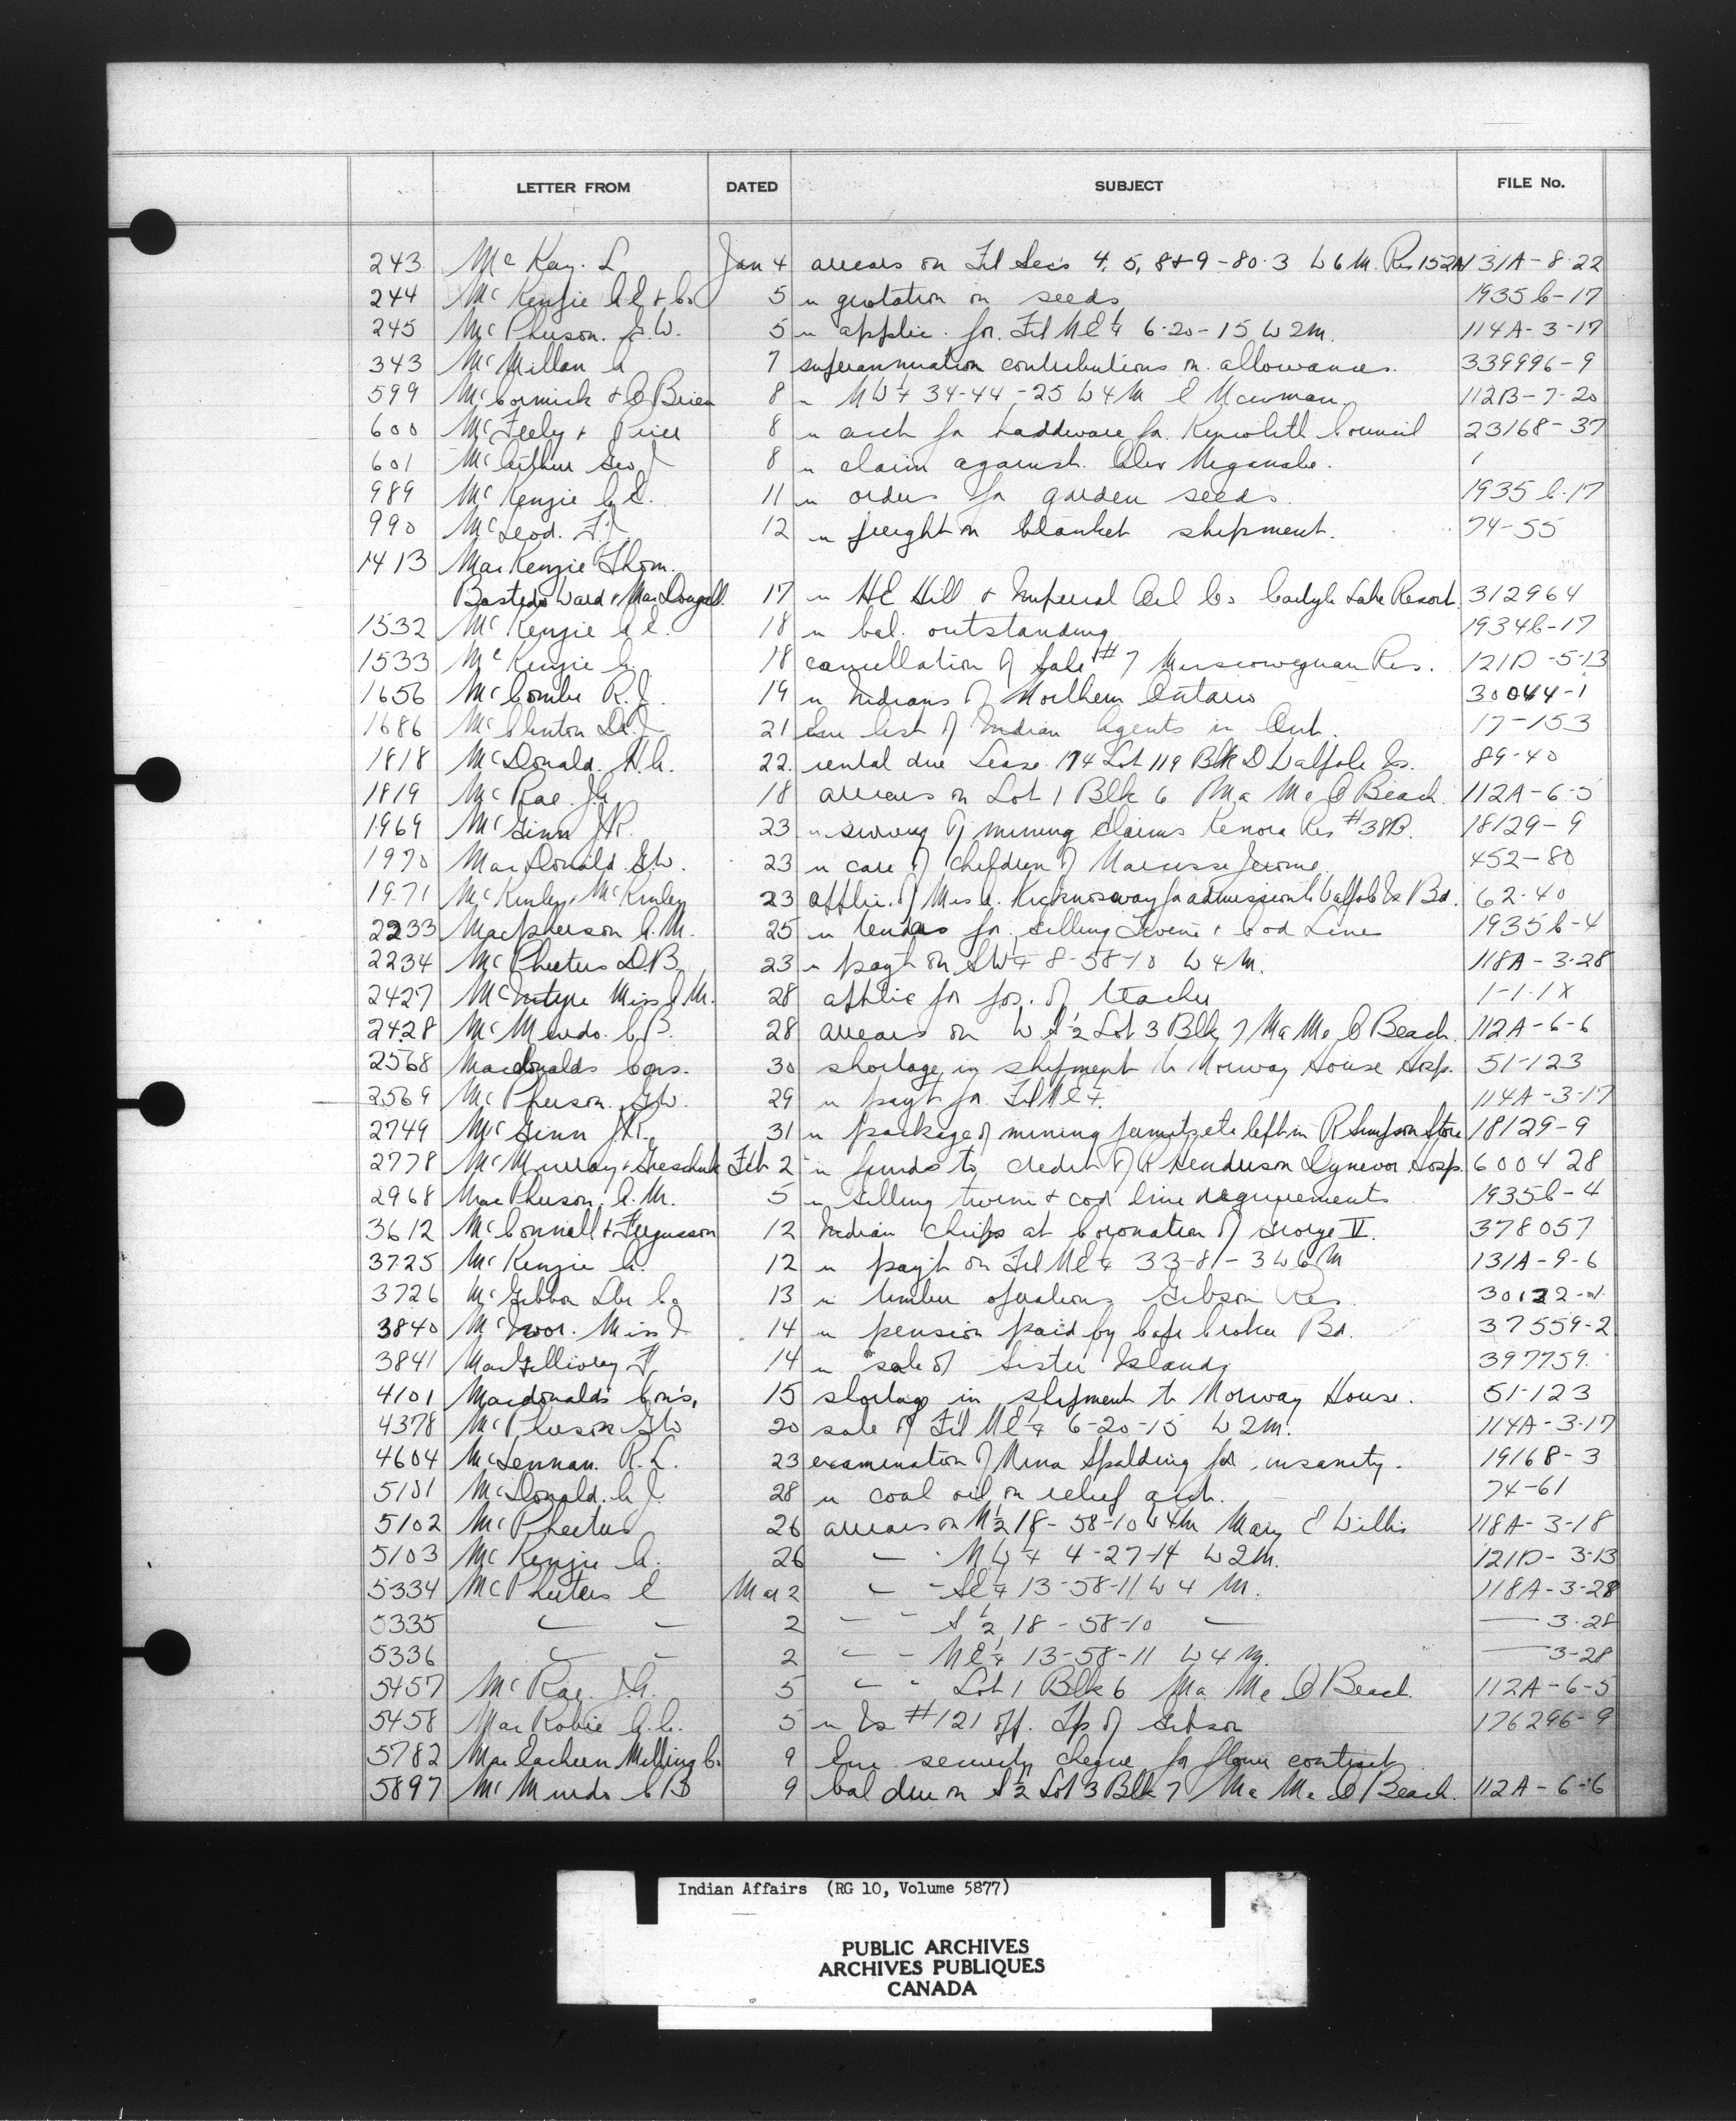 LETTER FROM DATED SUBJECT FILE No.
243 McKay. L Jan 4 arrears on Fél Secs 4, 5, 8+9-80-3 W6M. Res 152A 131A-8-22
244 McKenzie A.E. + Co 5 " quotation on seeds 1935C-17
245 McPherson. G.W. 5 " applic. for 6-20-15 W2M. 114A-3-17
343 McMillan A 7 superannuation contributions on allowances. 339996-9
599 McCormick + O'Brien 8 " NW¼ 34-44-25 W4M E Newman 112B-7-20
600 McFeely + Prior 8 " acct for hardware for Council 23168-37
601 McArthur Geo J 8 " claim against. Alex Meganabe.
989 McKenzie A.E. 11 " orders for garden seeds. 1935C-17
990 McLeod. F.J. 12 " freight on blanket shipment. 74-55
1413 MacKenzie Thom.
Bastedo Ward + MacDougall. 17 " HE Hill + Imperial Oil Co Carlyle Lake Resort. 312964
1532 McKenzie A.E. 18 " bal. outstanding 1934C-17
1533 McKenzie A. 18 cancellation of Sale #7 Muscowequan Res. 121D-5-13
1656 McCombe R.J. 19 " Indians of Northern Ontario 30044-1
1686 McClinton Dr. J 21 Enc list of Indian Agents in Ont. 17-153
1818 McDonald. H.A. 22. rental due Lease 174 Lot 119 Blk D Walpole Is. 89-40
1819 McRae. J.A. 18 arrears on Lot 1 Blk 6 Ma Me O Beach. 112A-6-5
1969 McGinn J.R. 23 " survey of mining claims Kenora Res #38B. 18129-9
1970 MacDonald G.W. 23 " care of children of Narcisse Jerome 452-80
1971 McKinley + McKinley 23 applic. of Mrs A. Kicknosway for admission to Walpole Is Bd. 62-40
2233 Macpherson A.M. 25 " tenders for Gilling Twine + Cod Lines 1935C-4
2234 McPheeters D.B. 23 " payt on SW¼ 8-58-10 W4M. 118A-3-28
2427 McIntyre Miss J.M. 28 applic for pos. of teacher 1-1-1X
2428 McMurdo. C.B. 28 arrears on W S½ Lot 3 Blk 7 Ma Me O Beach. 112A-6-6
2568 Macdonalds Cons. 30 shortage in shipment to Norway House Hosp. 51-123
2569 McPherson. G.W. 29 " payt for NE¼. 114A-3-17
2749 McGinn J.R. 31 " package of mining permits etc left in R Simpson Store 18129-9
2778 McMurray + Greschuk Feb 2 " funds to credit of R Henderson Dynevor Hosp. 600428
2968 MacPherson. A.M. 5 " Gilling twine + cod line requirements 1935C-4
3612 McConnell + Fergusson 12 Indian Chiefs at Coronation of George VI. 378057
3725 McKenzie A. 12 " payt on NE¼ 33-81-3 W6M 131A-9-6
3726 McGibbon Lbr Co 13 " timber operations Gibson Res
3840 McIvor. Miss J 14 " pension paid by Cape Croker Bd. 37559-2
3841 MacGillivray F 14 " sale of Sister Islands 397759.
4101 Macdonalds Cons. 15 shortage in shipment to Norway House. 51-123
4378 McPherson G.W. 20 sale of NE¼ 6-20-15 W2M. 114A-3-17
4604 McLennan. R.L. 23 examination of Nina Spalding for insanity. 19168-3
5101 McDonald. A.J. 28 " coal oil on relief acct. 74-61
5102 McPheeters 26 arrears on N½ 18-58-10 W4M Mary E Willis 118A-3-18
5103 McKenzie A. 26 " " NW¼ 4-27-14 W2M. 121D-3-13
5334 McPheeters E Mar 2 " " SE¼ 13-58-11 W4M. 118A-3-28
5335 " " 2 " " S½ 18-58-10 " — 3-28
5336 " " 2 " " NE¼ 13-58-11 W4M. — 3-28
5457 McRae. J.A. 5 " " Lot 1 Blk 6 Ma Me O Beach. 112A-6-5
5458 MacRobie A.C. 5 " Is #121 opp. Tp of Gibson 176296-9
5782 MacEachern Milling Co. 9 Enc security cheque for flour contract
5897 McMurdo C B 9 bal due on S½ Lot 3 Blk 7 Ma Me O Beach. 112A-6-6
Indian Affairs (RG 10, Volume 5877)
PUBLIC ARCHIVES
ARCHIVES PUBLIQUES
CANADA